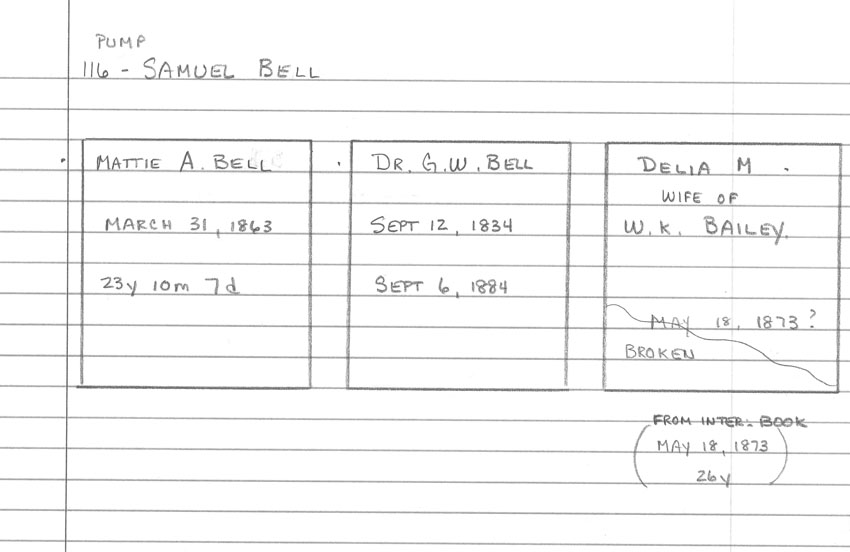 PUMP
116 - SAMUEL BELL
MATTIE A. BELL
MARCH 31, 1863
23y 10m 7d
DR. G.W. BELL
SEPT 12, 1834
SEPT 6, 1884
DELIA M.
WIFE OF
W.K. BAILEY.
MAY 18, 1873?
BROKEN
FROM INTER. BOOK
MAY 18, 1873
26y